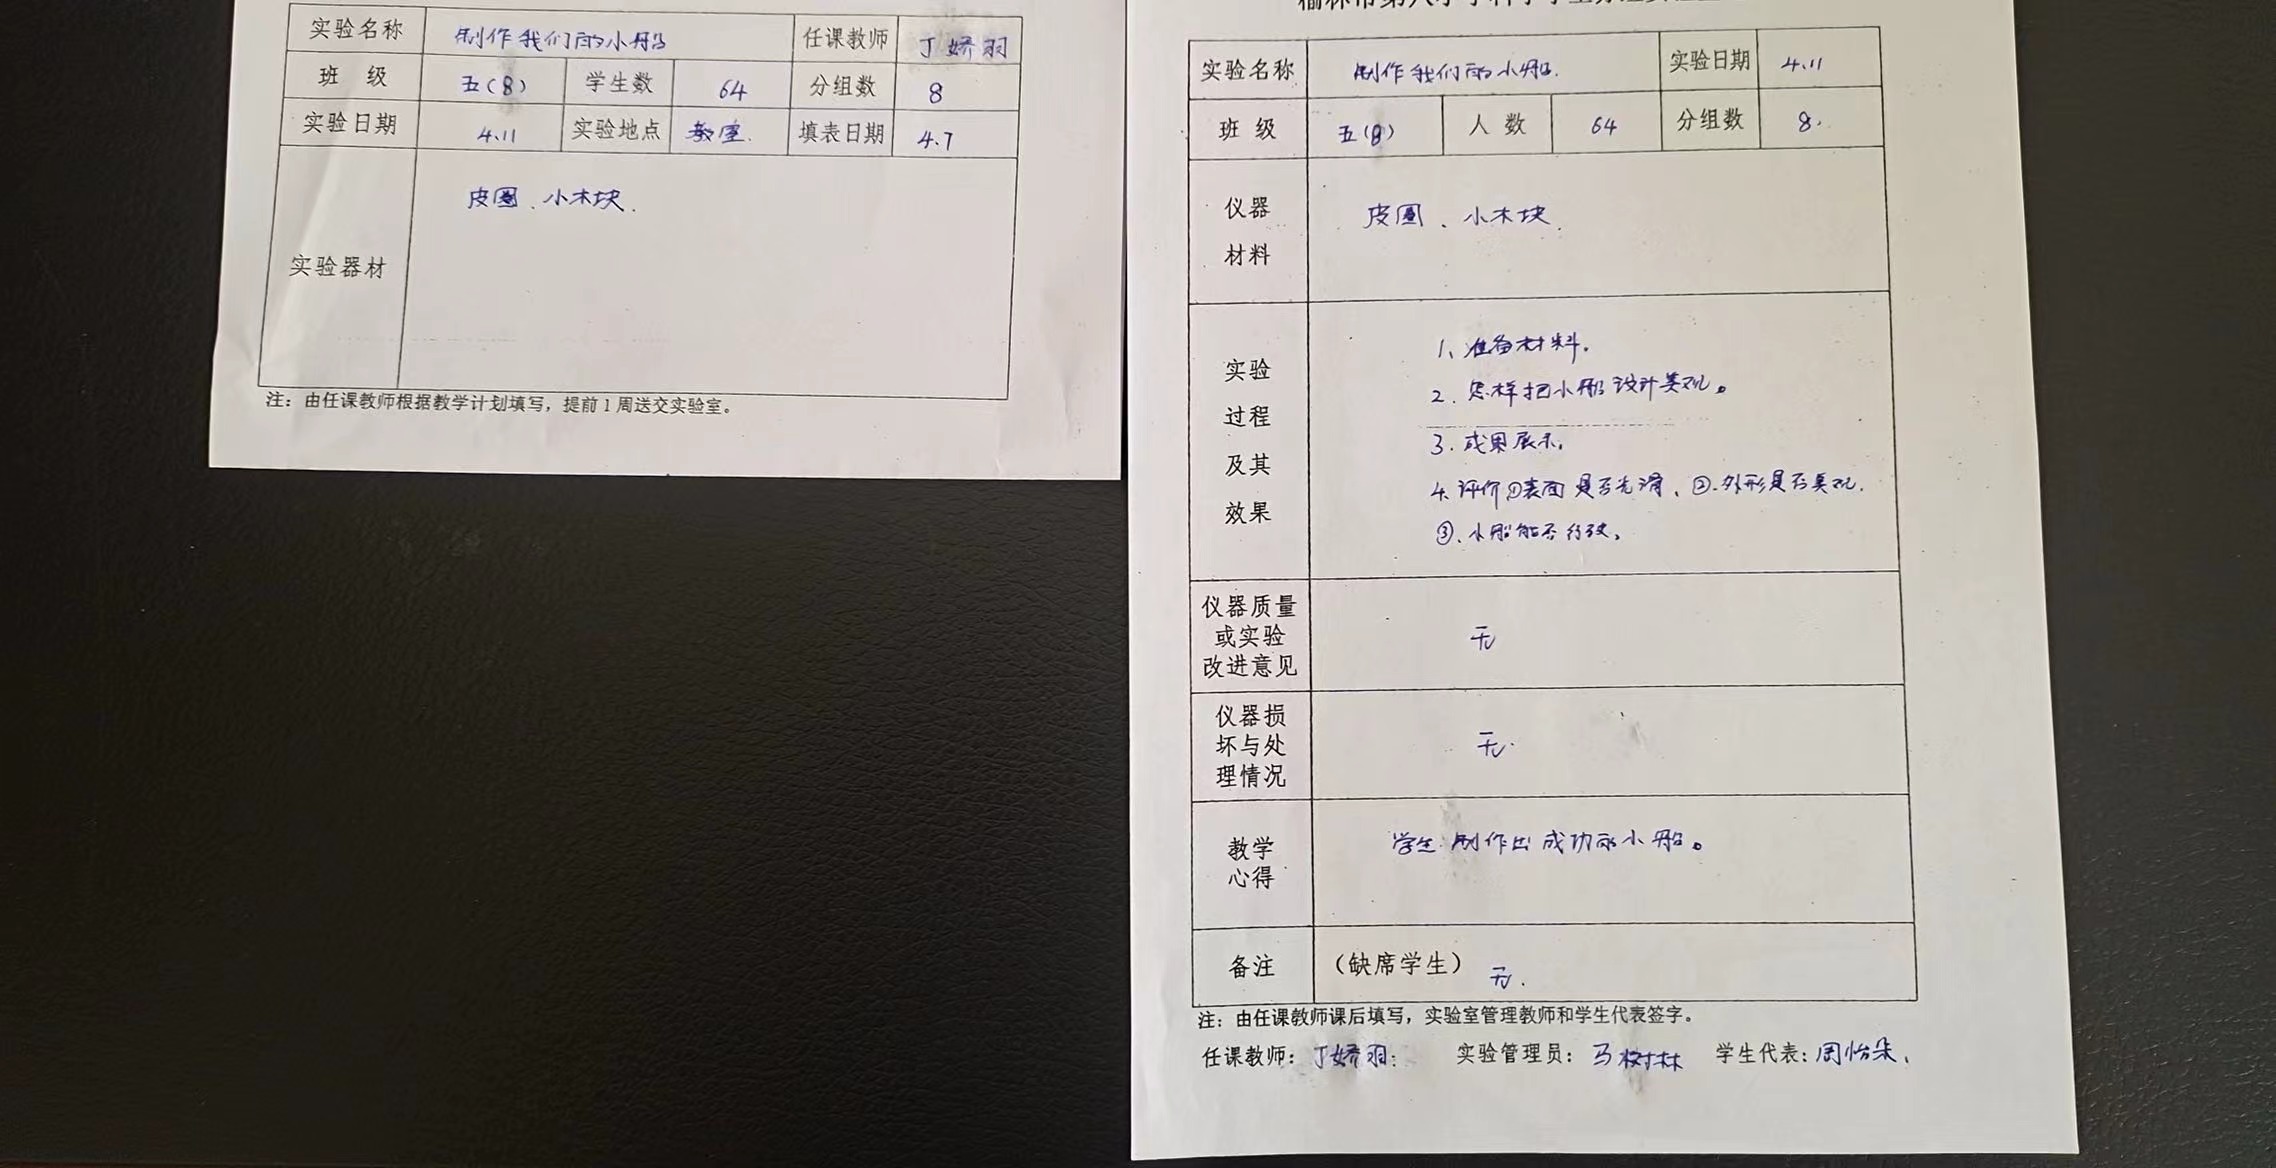 实验名称 制作我们的小船 任课教师 丁娇羽
班 级 五(8) 学生数 64 分组数 8
实验日期 4.11 实验地点 教室. 填表日期 4.7
实验器材 皮圈、小木块.
注：由任课教师根据教学计划填写，提前1周送交实验室。
实验名称 制作我们的小船. 实验日期 4.11
班 级 五(8) 人 数 64 分组数 8.
仪器
材料
皮圈、小木块.
实验
过程
及其
效果
1、准备材料。
2.怎样把小船设计美观。
3.成果展示。
4.评价①表面是否光滑、②.外形是否美观.
③、小船能否行驶。
仪器质量
或实验
改进意见
无
仪器损
坏与处
理情况
无.
教学
心得
学生制作出成功的小船。
备注 （缺席学生） 无.
注：由任课教师课后填写，实验室管理教师和学生代表签字。
任课教师：丁娇羽. 实验管理员：马树林 学生代表：周怡朵.